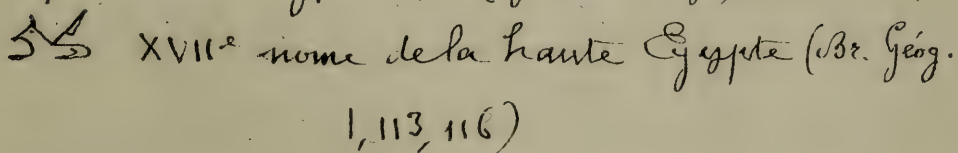 XVIIe nome de la haute Egypte (Br. Géog.
1, 113, 116)